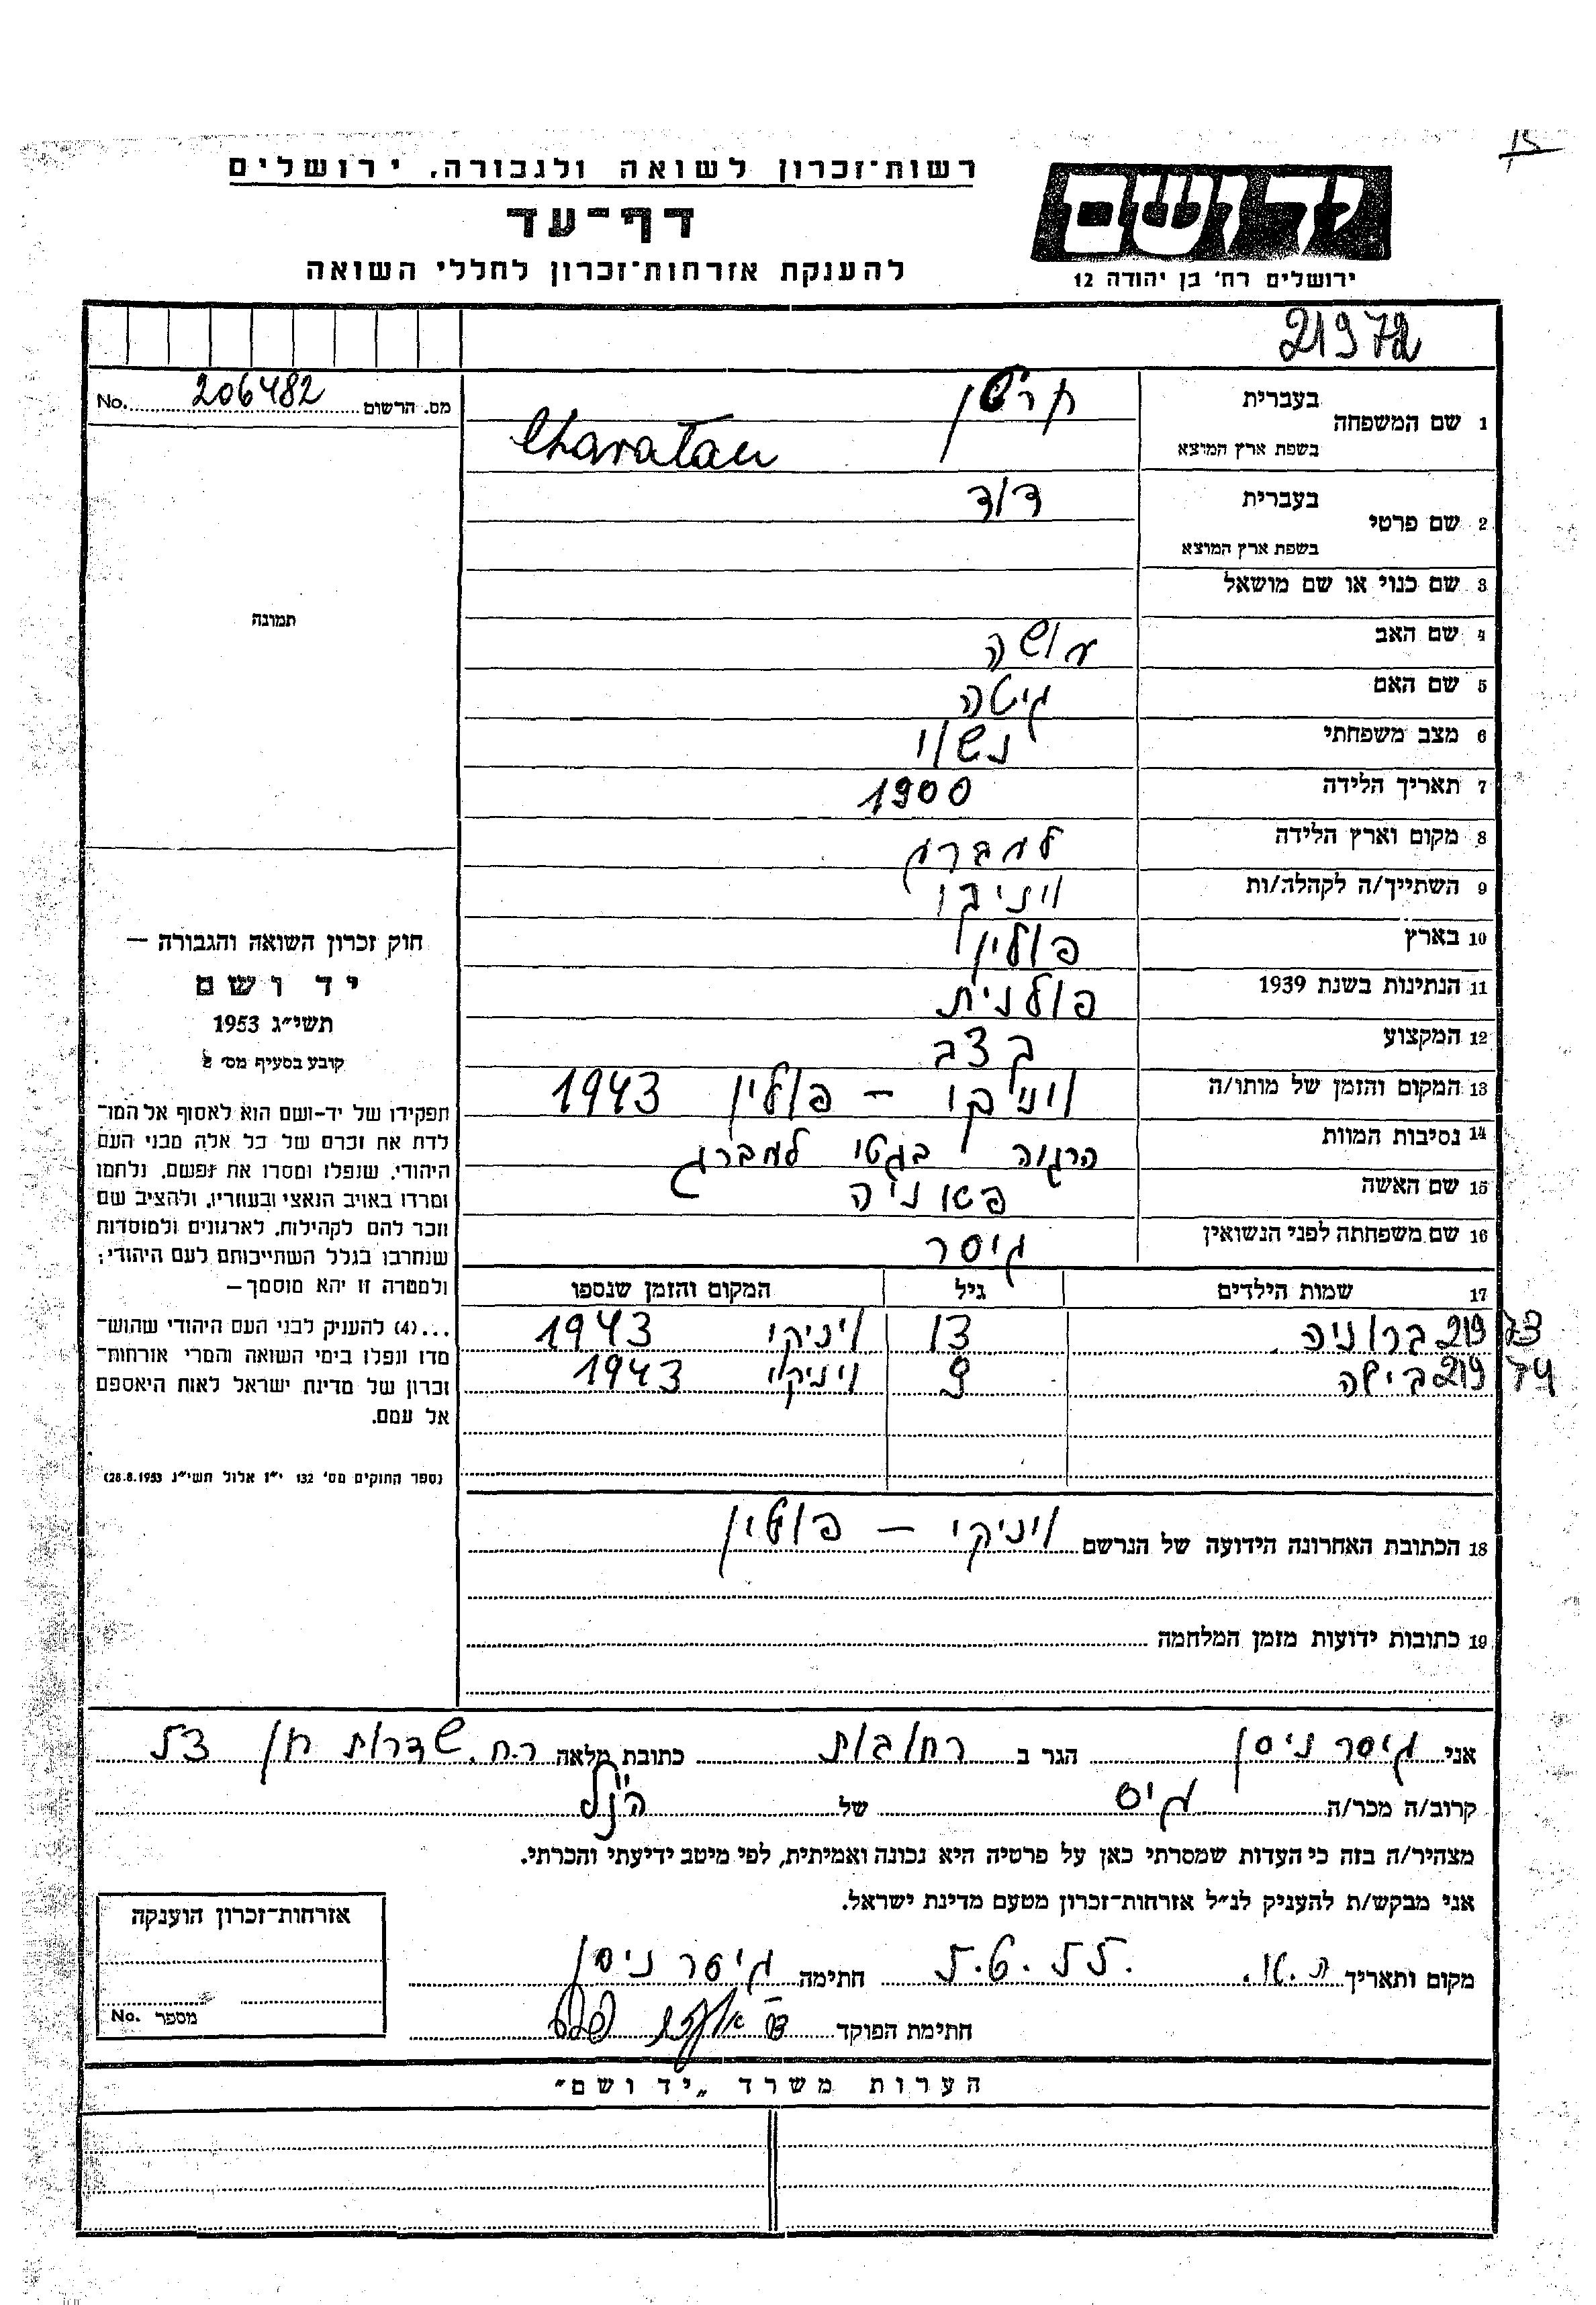 רשות־זכרון לשואה ולגבורה, ירושלים
דף־עד
להענקת אזרחות־זכרון לחללי השואה
יד ושם
ירושלים רח' בן יהודה 12
21972
מס. הרשום 206482 No.
1 שם המשפחה בעברית חרטן
בשפת ארץ המוצא Charatan
2 שם פרטי בעברית דוד
בשפת ארץ המוצא
3 שם כנוי או שם מושאל
4 שם האב משה
5 שם האם גיטה
6 מצב משפחתי נשוי
7 תאריך הלידה 1900
8 מקום וארץ הלידה למברג
9 השתייך/ה לקהלה/ות ויניקי
10 בארץ פולין
11 הנתינות בשנת 1939 פולנית
12 המקצוע קצב
13 המקום והזמן של מותו/ה ויניקי – פולין 1943
14 נסיבות המוות בגטו למברג
15 שם האשה
16 שם משפחתה לפני הנשואין גיסר
17 שמות הילדים גיל המקום והזמן שנספו
21973 ברוניה 13 ויניקי 1943
21974 9 ויניקי 1943
18 הכתובת האחרונה הידועה של הנרשם ויניקי – פולין
19 כתובות ידועות מזמן המלחמה
תמונה
חוק זכרון השואה והגבורה –
יד ושם
תשי״ג 1953
קובע בסעיף מס' 2
תפקידו של יד-ושם הוא לאסוף אל המו־
לדת את זכרם של כל אלה מבני העם
היהודי, שנפלו ומסרו את נפשם, נלחמו
ומרדו באויב הנאצי ובעוזריו, ולהציב שם
וזכר להם לקהילות, לארגונים ולמוסדות
שנחרבו בגלל השתייכותם לעם היהודי;
ולמטרה זו יהא מוסמך –
...(4) להעניק לבני העם היהודי שהוש־
מדו ונפלו בימי השואה והמרי אזרחות־
זכרון של מדינת ישראל לאות היאספם
אל עמם.
(ספר החוקים מס' 132 י״ז אלול תשי״ג 28.8.1953)
אני גיסר ניסן הגר ב רחובות כתובת מלאה רח. שדרות חן
קרוב/ה מכר/ה גיס של הנ״ל
מצהיר/ה בזה כי העדות שמסרתי כאן על פרטיה היא נכונה ואמיתית, לפי מיטב ידיעתי והכרתי.
אני מבקש/ת להעניק לנ״ל אזרחות־זכרון מטעם מדינת ישראל.
מקום ותאריך חתימה גיסר ניסן
חתימת הפוקד
אזרחות־זכרון הוענקה
מספר No.
הערות משרד „יד ושם״